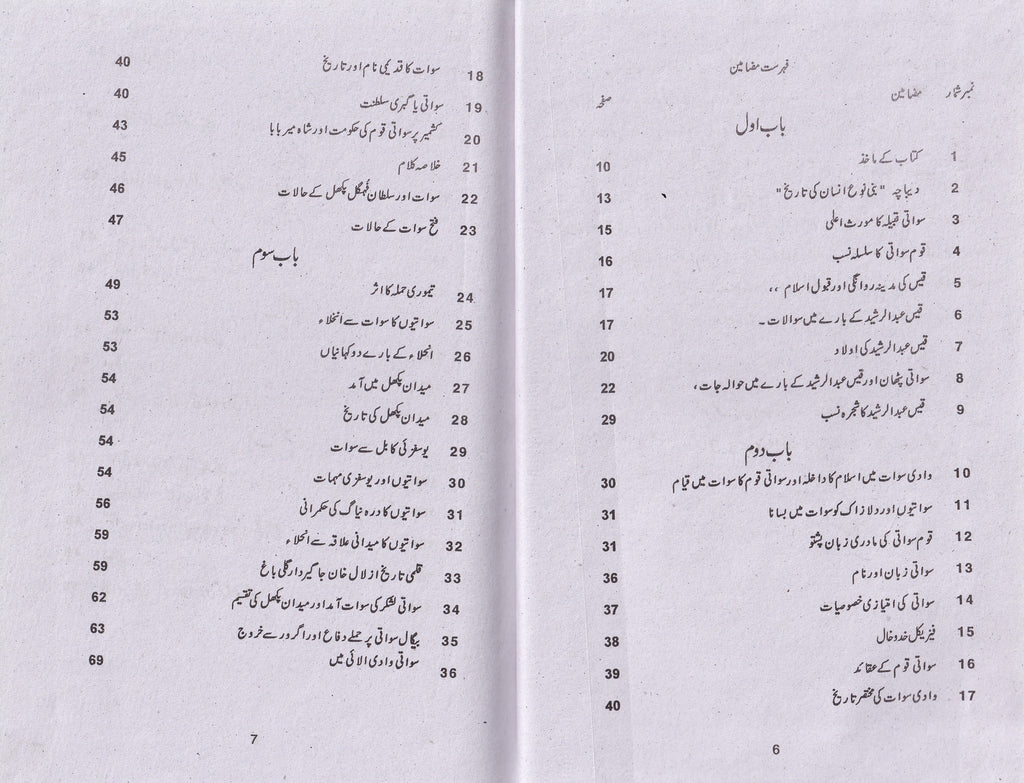 فہرست مضامین
نمبر شمار مضامین صفحہ
باب اول
1 کتاب کے ماخذ 10
2 دیباچہ "بنی نوع انسان کی تاریخ" 13
3 سواتی قبیلہ کا مورث اعلیٰ 15
4 قوم سواتی کا سلسلہ نسب 16
5 قیس کی مدینہ روانگی اور قبول اسلام ،، 17
6 قیس عبدالرشید کے بارے میں سوالات۔ 17
7 قیس عبدالرشید کی اولاد 20
8 سواتی پٹھان اور قیس عبدالرشید کے بارے میں حوالہ جات، 22
9 قیس عبدالرشید کا شجرہ نسب 29
باب دوم
10 وادی سوات میں اسلام کا داخلہ اور سواتی قوم کا سوات میں قیام 30
11 سواتیوں اور دلازاک کو سوات میں بسانا 31
12 قوم سواتی کی مادری زبان پشتو 31
13 سواتی زبان اور نام 36
14 سواتی کی امتیازی خصوصیات 37
15 فیزیکل خدوخال 38
16 سواتی قوم کے عقائد 39
17 وادی سوات کی مختصر تاریخ 40
6
18 سوات کا قدیمی نام اور تاریخ 40
19 سواتی یا گبری سلطنت 40
20 کشمیر پر سواتی قوم کی حکومت اور شاہ میر بابا 43
21 خلاصہ کلام 45
22 سوات اور سلطان پکھل کے حالات 46
23 فتح سوات کے حالات 47
باب سوم
24 تیموری حملہ کا اثر 49
25 سواتیوں کا سوات سے انخلاء 53
26 انخلاء کے بارے دو کہانیاں 53
27 میدان پکھل میں آمد 54
28 میدان پکھل کی تاریخ 54
29 یوسفزئی کابل سے سوات 54
30 سواتیوں اور یوسفزی مہمات 54
31 سواتیوں کا درہ نیاگ کی حکمرانی 56
32 سواتیوں کا میدانی علاقہ سے انخلاء 59
33 قلمی تاریخ از لال خان جاگیردار گلی باغ 59
34 سواتی لشکر کی سوات آمد اور میدان پکھل کی تقسیم 62
35 بیگال سواتی پر حملے دفاع اور اگرور سے خروج 63
36 سواتی وادی الائی میں 69
7